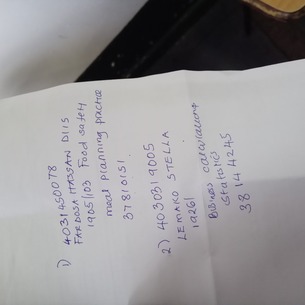 1) 4031450078
FARDOSA HASSAN DIIS
1905/103 Food safety
meal planning practice
37810151.
2) 4030319005
LEMAKO STELLA
19261
Business calculations
statistics
38144245